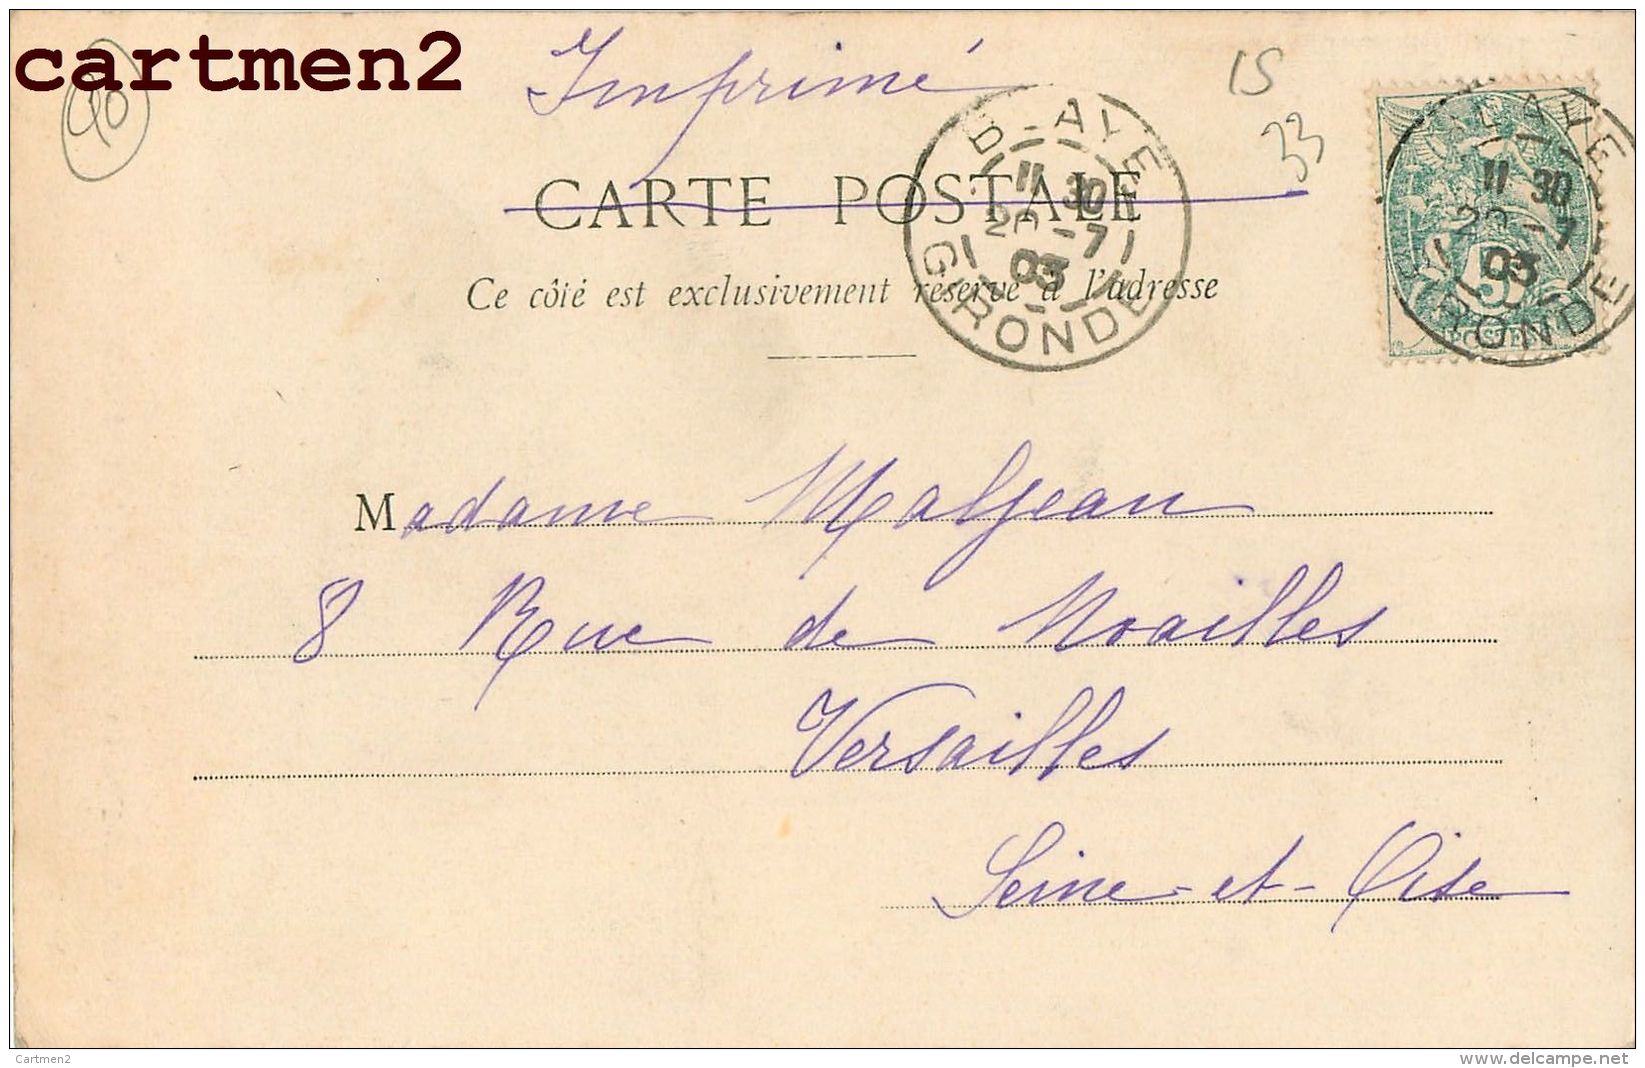 cartmen2
40
Imprimé
15
33
CARTE POSTALE
BLAYE
11 30
20 -7
03
GIRONDE
BLAYE
11 30
20 -7
03
GIRONDE
5
POSTES
Ce côté est exclusivement réservé à l'adresse
Madame Maljean
8 Rue de Noailles
Versailles
Seine-et-Oise
Cartmen2
www.delcampe.net